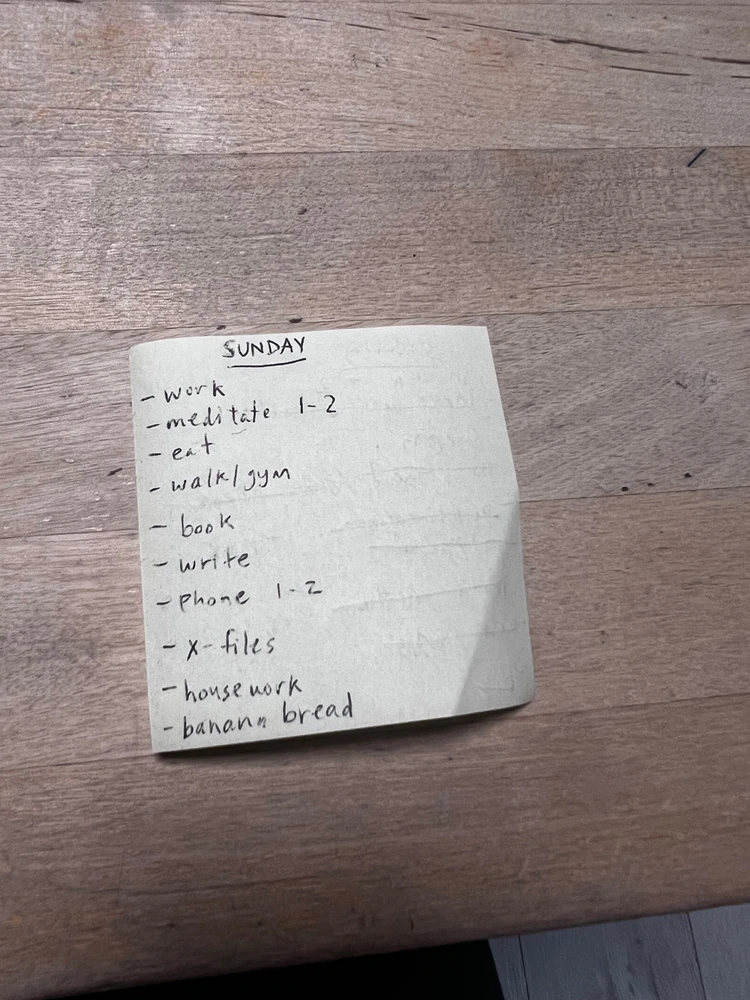 SUNDAY
- work
- meditate 1-2
- eat
- walk/gym
- book
- write
- phone 1-2
- x-files
- housework
- banana bread